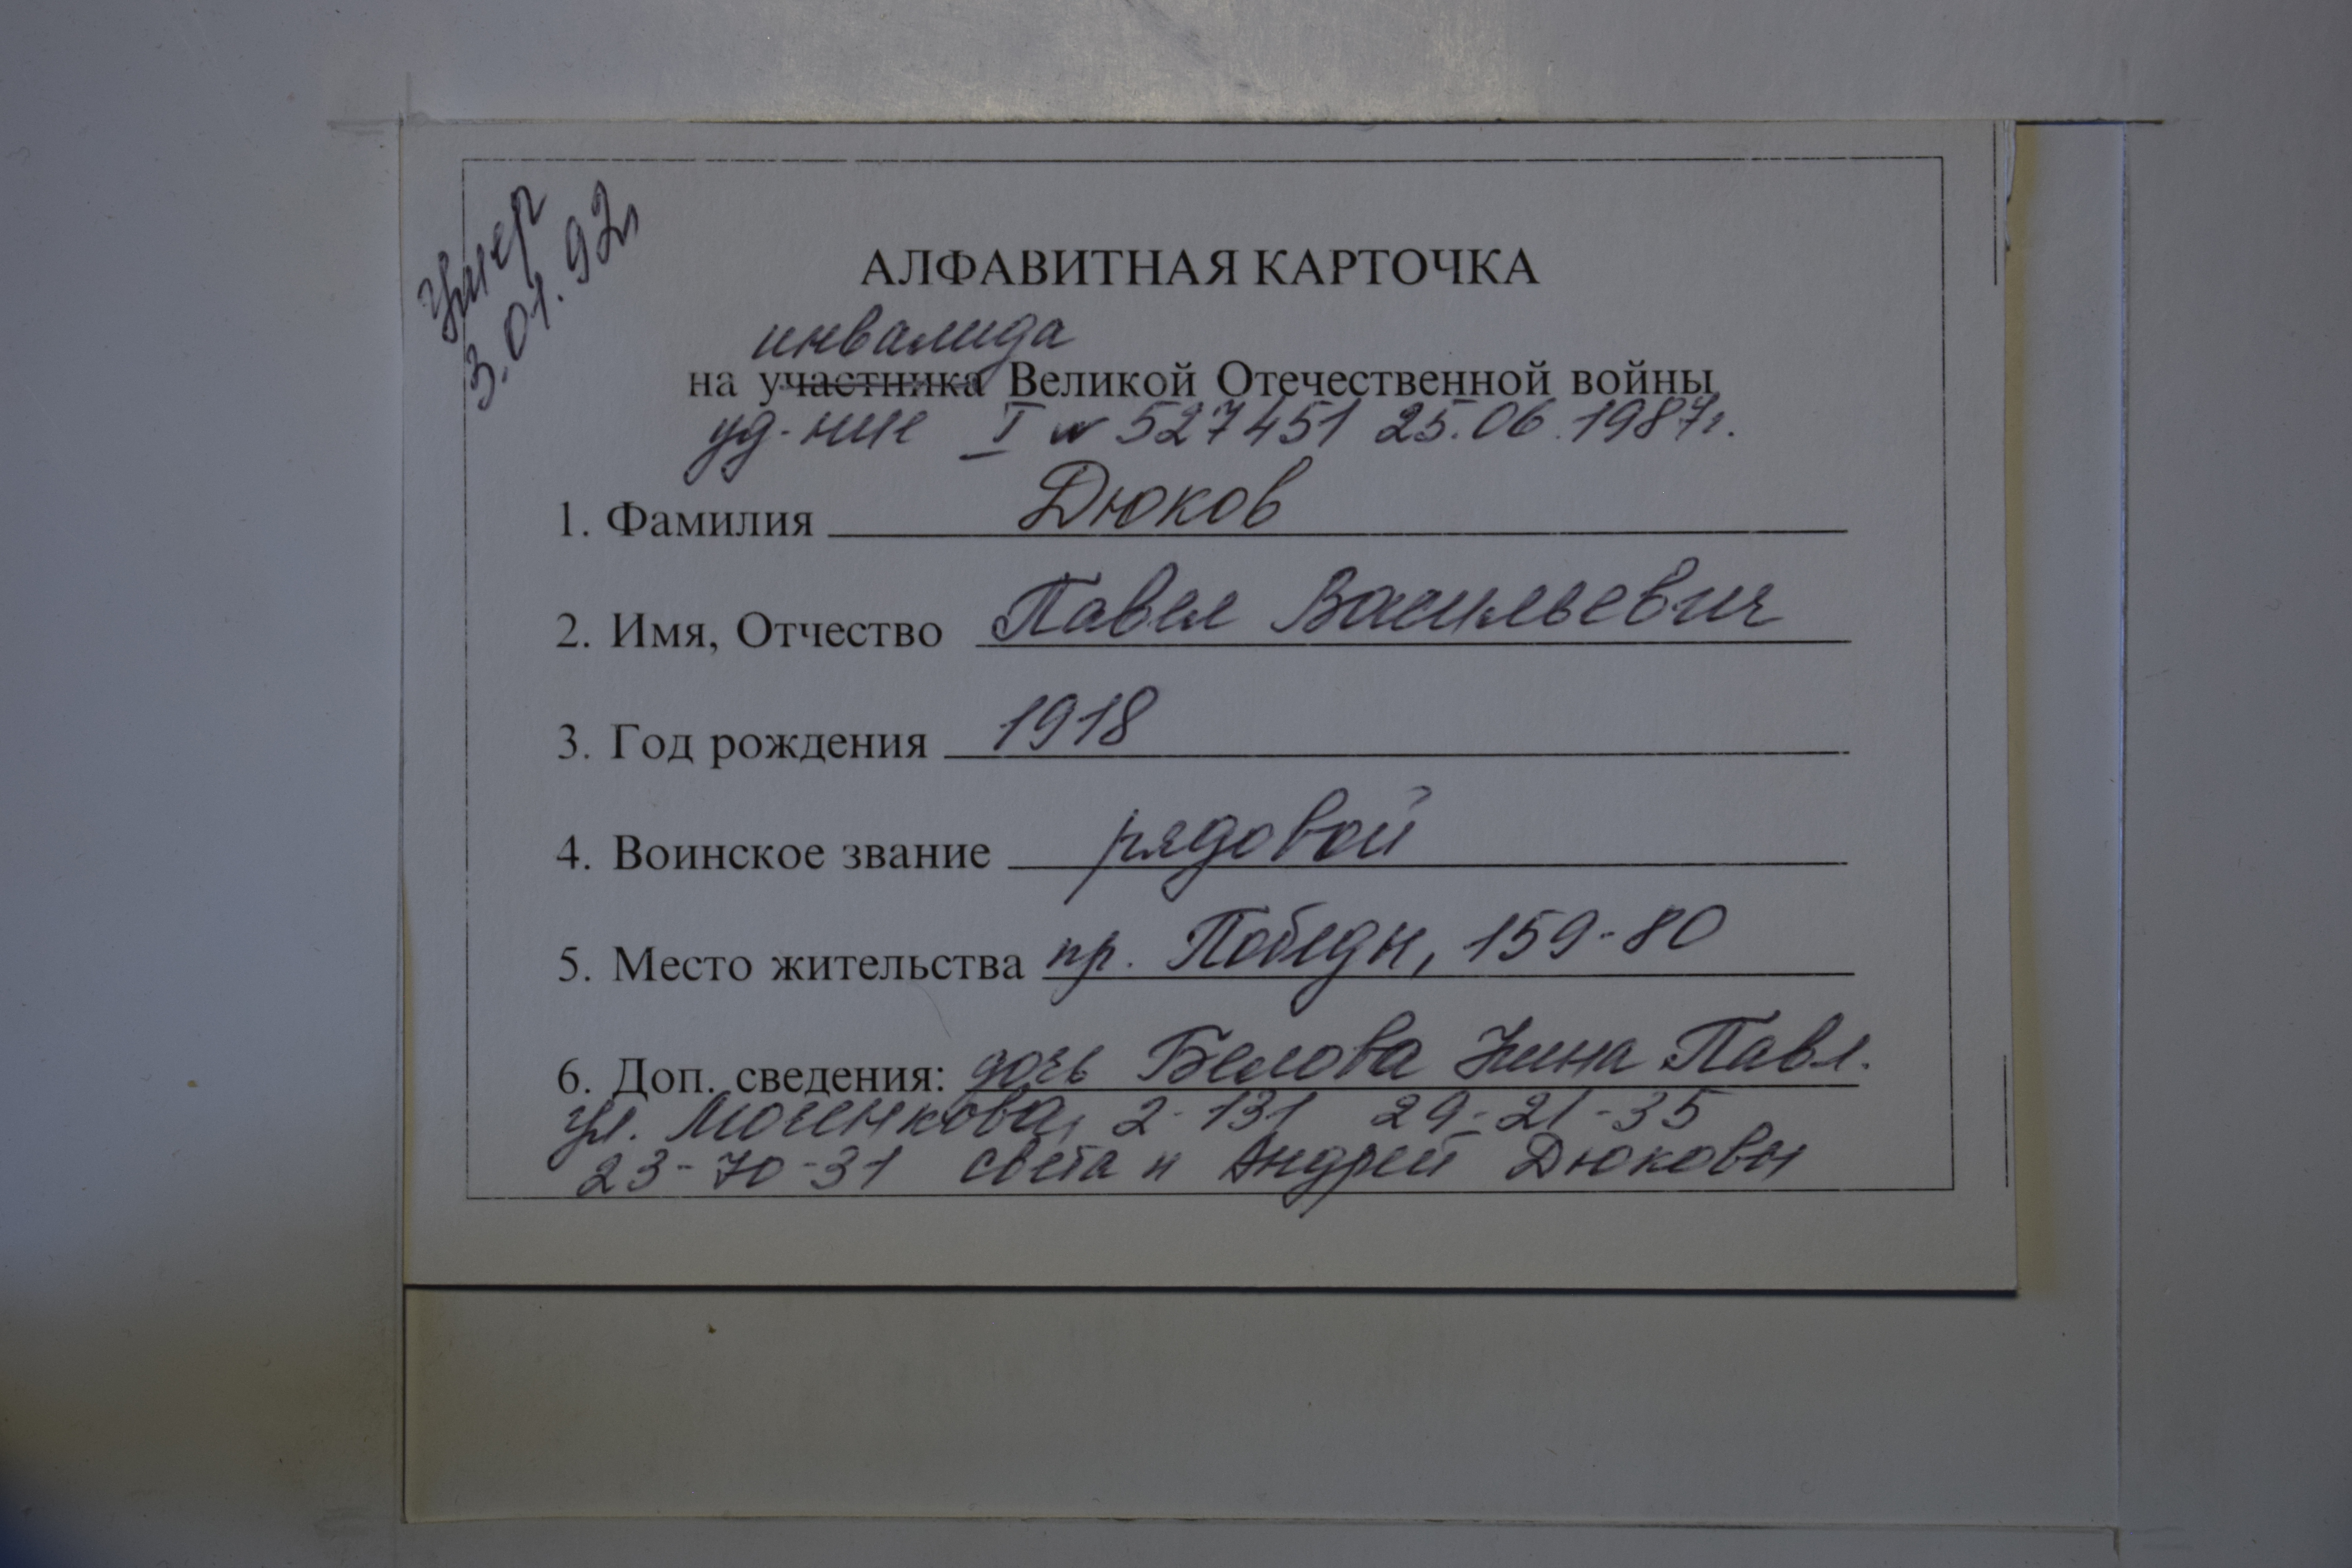 Умер
3.01.92г
АЛФАВИТНАЯ КАРТОЧКА
инвалида
на участника Великой Отечественной войны
уд-ние I № 527451 25.06.1987г.
1. Фамилия Дюков
2. Имя, Отчество Павел Васильевич
3. Год рождения 1918
4. Воинское звание рядовой
5. Место жительства пр. Победы, 159-80
6. Доп. сведения: дочь Белова Нина Павл.
ул. Моченкова, 2-131 29-21-35
23-70-31 Света и Андрей Дюковы